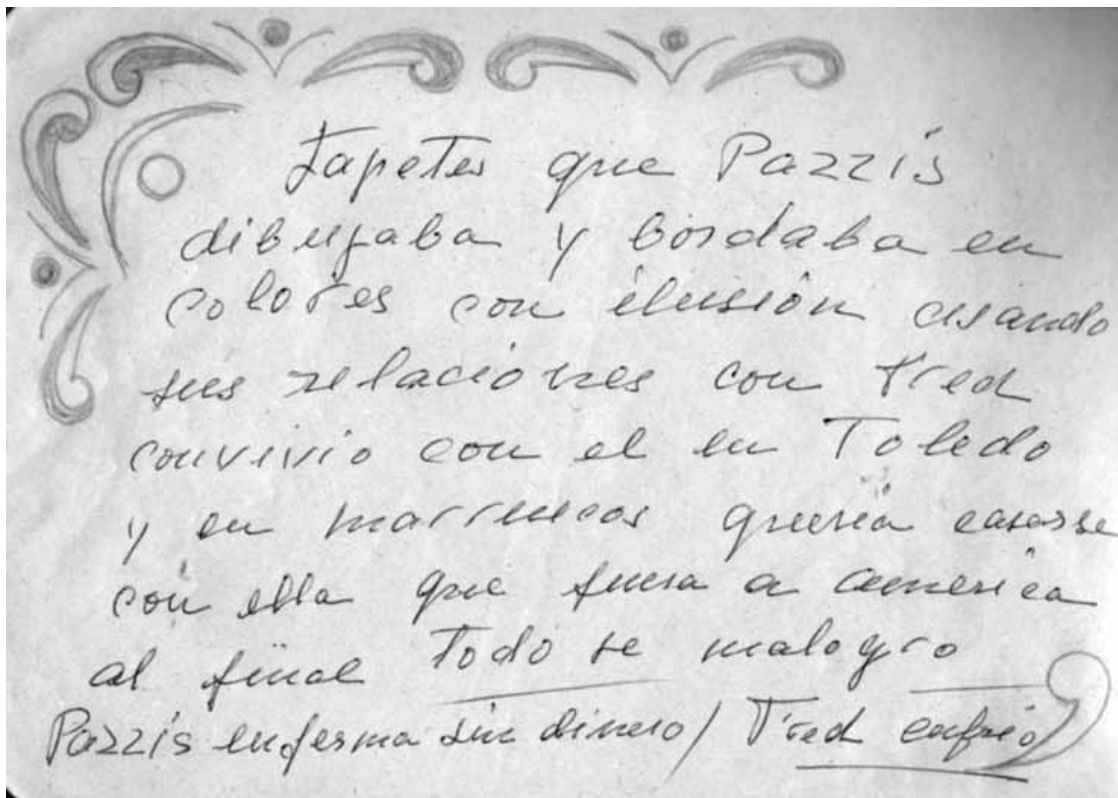 Tapetes que Pazzís
dibujaba y bordaba en
colores con ilusión cuando
sus relaciones con Fred
convivio con el en Toledo
y en marruecos quería casarse
con ella que fuera a america
al final Todo se malogro
Pazzís enferma sin dinero / Fred enfrió